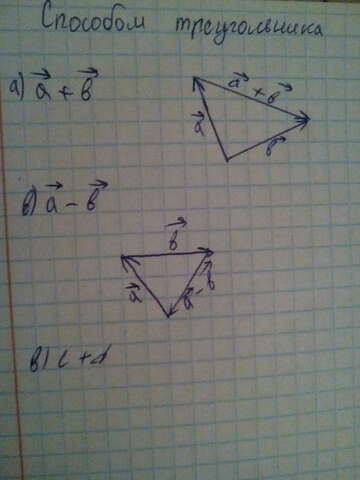 Способом треугольника
а) a⃗ + b⃗
a⃗ + b⃗
a⃗
b⃗
б) a⃗ - b⃗
b⃗
a⃗
a⃗ - b
в) c + d